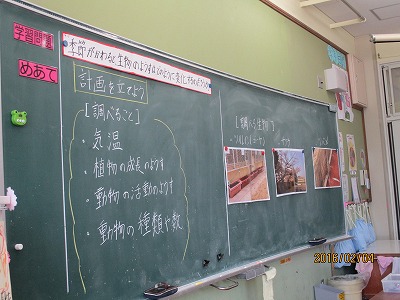 学習問題
季節がかわると生物のようすはどのように変化するのだろうか
めあて
計画を立てよう
[調べること]
・気温
・植物の成長のようす
・動物の活動のようす
・動物の種類や数
[調べる生物]
・サクラ
2016/02/04